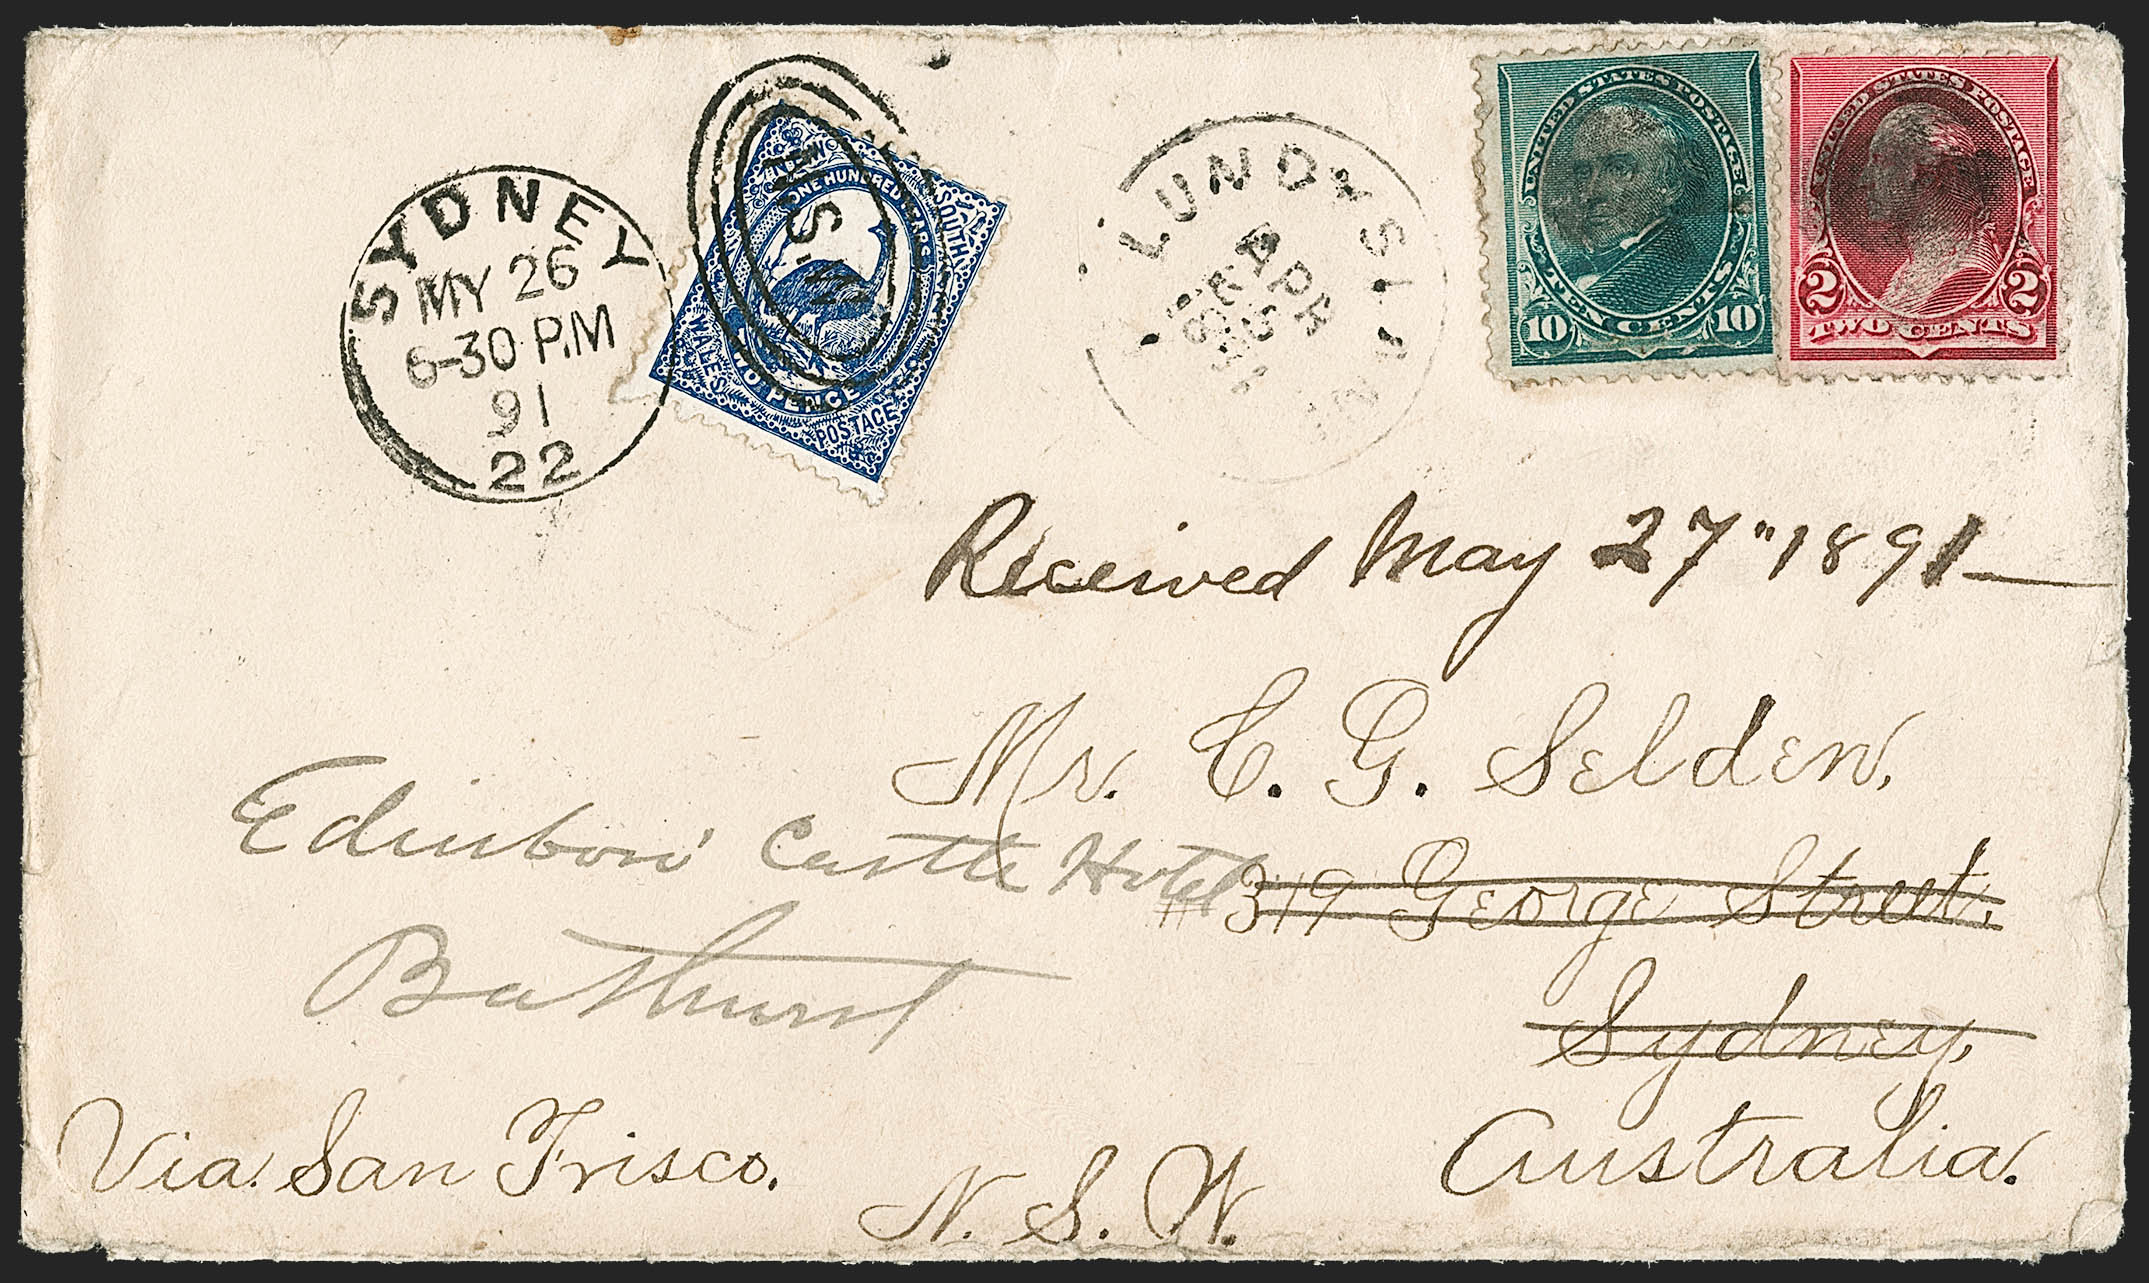 SYDNEY
MY 26
6-30 P.M
91
22
N.S.W
NEW SOUTH WALES POSTAGE
ONE HUNDRED YEARS
TWO PENCE
LUNDYS LA
APR
UNITED STATES POSTAGE
TEN CENTS
10 10
UNITED STATES POSTAGE
2 2
TWO CENTS
Received May 27" 1891
Mr. C. G. Selden,
Edinboro' Castle Hotel
# 319 George Street,
Bathurst
Sydney,
Australia.
Via San Frisco.
N. S. W.